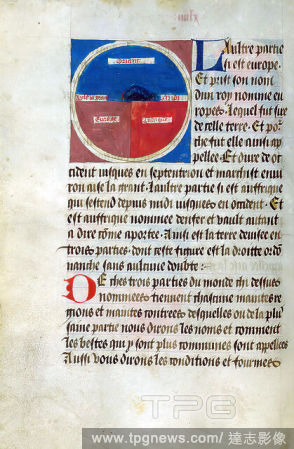 Laultre partie
si est europe.
Et prist son nom
dun roy nomme eu
ropes. Lequel fut sire
de celle terre. Et por
che fut elle ainsi ap
pellee. Et dure de oc
cident iusques en septentrion et marchist envi
ron asie la grant. Laultre partie si est auffrique
qui sestend depuis midi iusques en occident. Et
est auffrique nommee denfer et vault autant
a dire come aportee. Ainsi est la terre devisee en
trois parties. dont ceste figure est la droitte ordo
nanche sans aulcune doubte.
De ches trois parties du monde chi dessus
nommees tiennent chascune maintes re
gions et maintes contrees desquelles ou de la plus
saine partie nous dirons les noms et comment
les bestes qui y sont plus communes sont appellees
Aussi vous dirons les conditions et fourmes
TPG
www.tpgnews.com / 達志影像